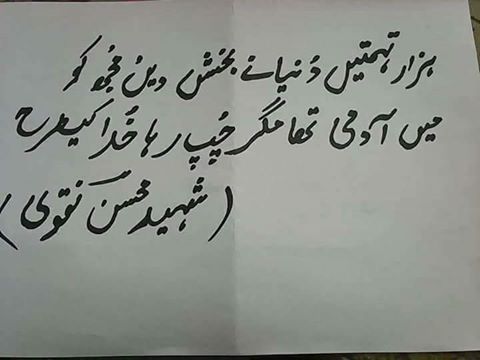 ہزار تہمتیں دُنیا نے بخش دیں مجھ کو
میں آدمی تھا مگر چُپ رہا خُدا کیطرح
(شہید محسن نقوی)